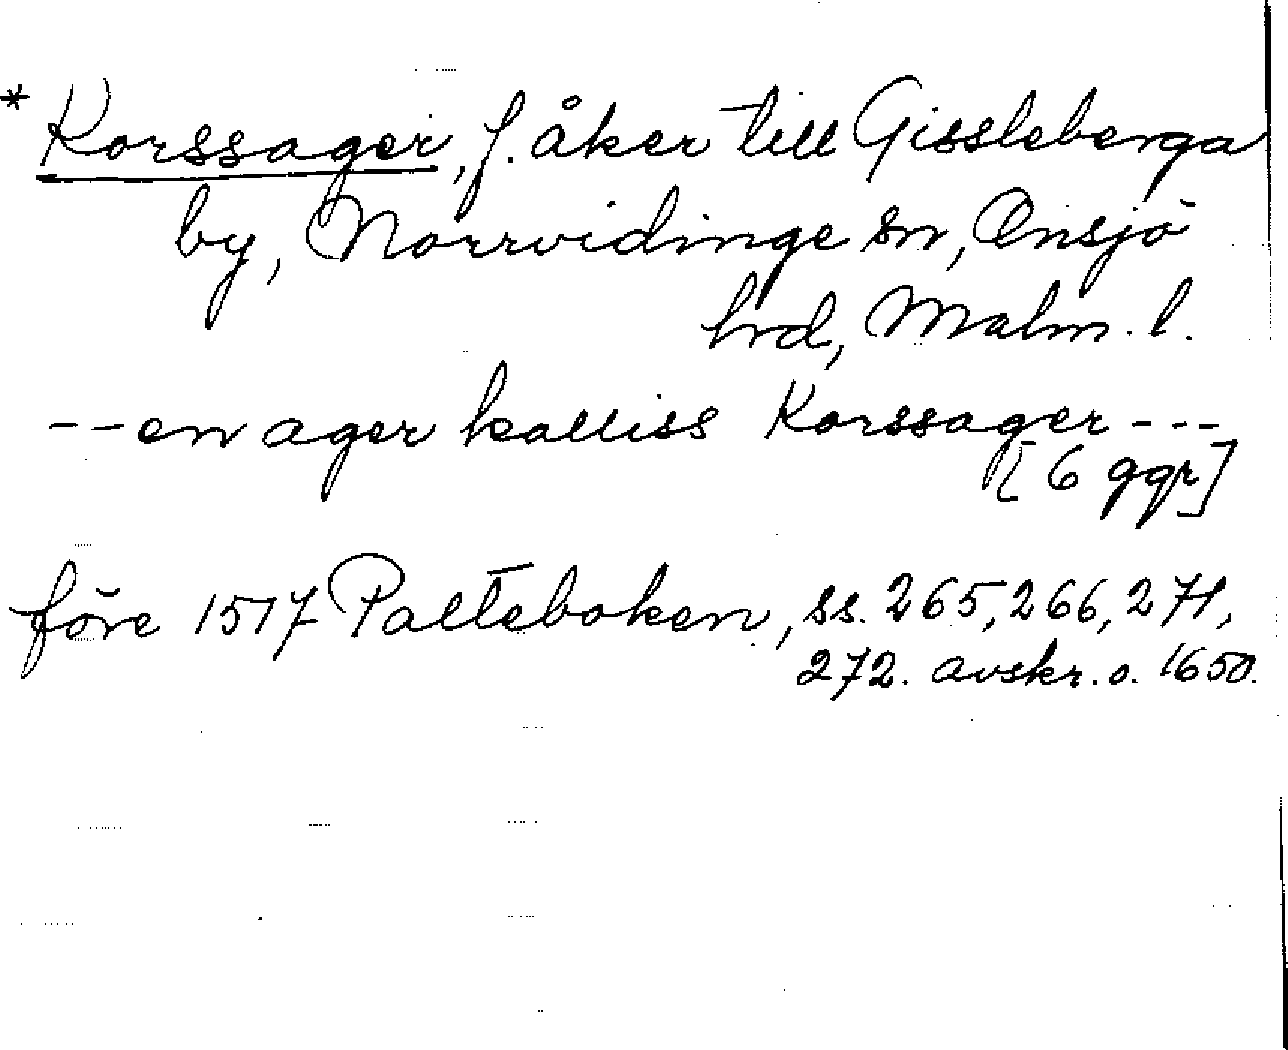 * Korssager, f. åker till Gissleberga
by, Norrvidinge sn, Onsjö
hrd, Malm. l.
-- en ager kalliss Korssager ---
[6 ggr]
före 1517 Palteboken, ss. 265, 266, 271,
272. avskr. o. 1650.